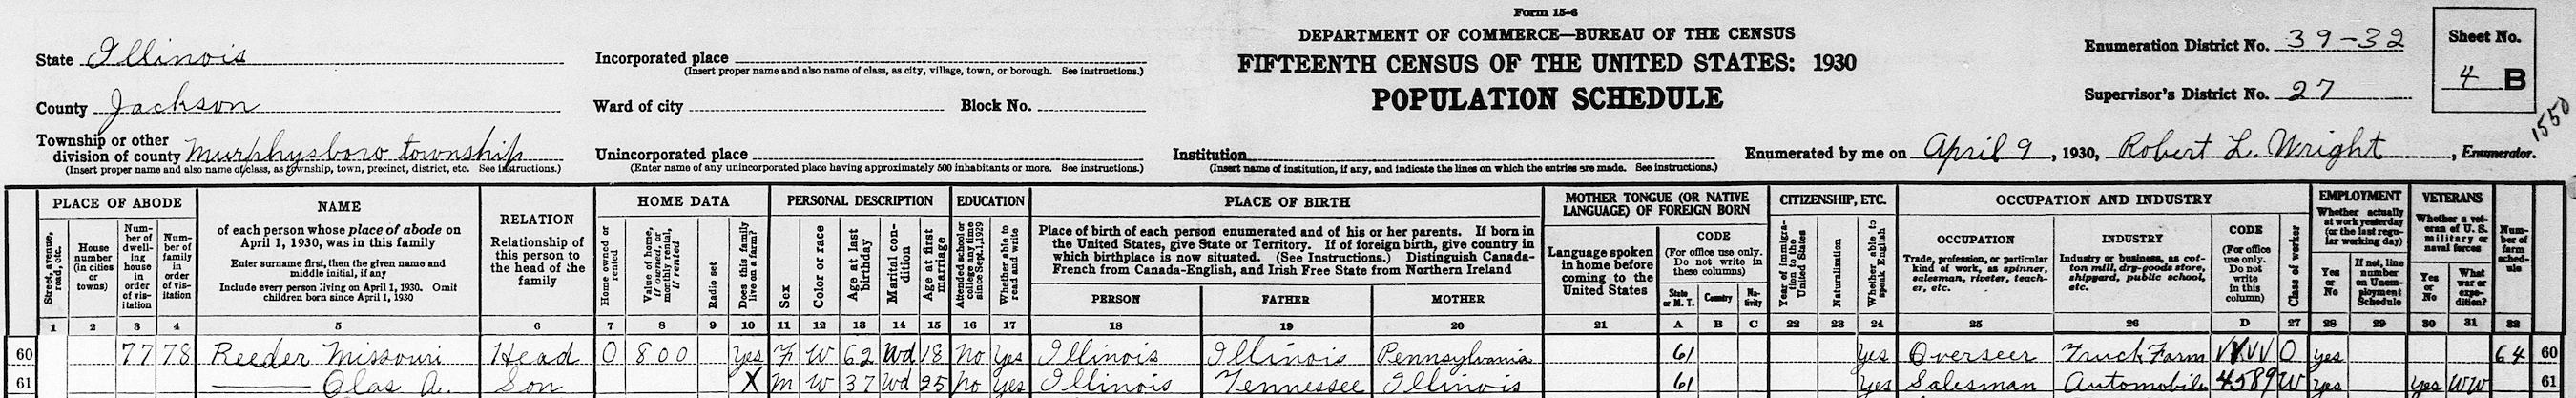 Form 15-6
DEPARTMENT OF COMMERCE—BUREAU OF THE CENSUS
FIFTEENTH CENSUS OF THE UNITED STATES: 1930
POPULATION SCHEDULE
State Illinois
County Jackson
Township or other
division of county Murphysboro township
(Insert proper name and also name of class, as township, town, precinct, district, etc. See instructions.)
Incorporated place
(Insert proper name and also name of class, as city, village, town, or borough. See instructions.)
Ward of city Block No.
Unincorporated place
(Enter name of any unincorporated place having approximately 500 inhabitants or more. See instructions.)
Institution
(Insert name of institution, if any, and indicate the lines on which the entries are made. See instructions.)
Enumeration District No. 39-32
Supervisor's District No. 27
Sheet No.
4 B
1550
Enumerated by me on April 9, 1930, Robert L. Wright, Enumerator.
PLACE OF ABODE
Street, avenue, road, etc.
House number (in cities or towns)
Number of dwelling house in order of visitation
Number of family in order of visitation
NAME
of each person whose place of abode on
April 1, 1930, was in this family
Enter surname first, then the given name and
middle initial, if any
Include every person living on April 1, 1930. Omit
children born since April 1, 1930
RELATION
Relationship of
this person to
the head of the
family
HOME DATA
Home owned or rented
Value of home, if owned, or monthly rental, if rented
Radio set
Does this family live on a farm?
PERSONAL DESCRIPTION
Sex
Color or race
Age at last birthday
Marital condition
Age at first marriage
EDUCATION
Attended school or college any time since Sept. 1, 1929
Whether able to read and write
PLACE OF BIRTH
Place of birth of each person enumerated and of his or her parents. If born in
the United States, give State or Territory. If of foreign birth, give country in
which birthplace is now situated. (See Instructions.) Distinguish Canada-
French from Canada-English, and Irish Free State from Northern Ireland
PERSON FATHER MOTHER
MOTHER TONGUE (OR NATIVE
LANGUAGE) OF FOREIGN BORN
Language spoken
in home before
coming to the
United States
CODE
(For office use only.
Do not write in
these columns)
State or M. T. Country Nativity
CITIZENSHIP, ETC.
Year of immigration to the United States
Naturalization
Whether able to speak English
OCCUPATION AND INDUSTRY
OCCUPATION
Trade, profession, or particular
kind of work, as spinner,
salesman, riveter, teach-
er, etc.
INDUSTRY
Industry or business, as cot-
ton mill, dry-goods store,
shipyard, public school,
etc.
CODE
(For office
use only.
Do not
write
in this
column)
Class of worker
EMPLOYMENT
Whether actually
at work yesterday
(or the last regu-
lar working day)
Yes or No
If not, line number on Unemployment Schedule
VETERANS
Whether a vet-
eran of U. S.
military or
naval forces
Yes or No
What war or expedition?
Number of farm schedule
1 2 3 4 5 6 7 8 9 10 11 12 13 14 15 16 17 18 19 20 21 A B C 22 23 24 25 26 D 27 28 29 30 31 32
60 77 78 Reeder Missouri Head O 800 Yes F W 62 Wd 18 No Yes Illinois Illinois Pennsylvania 61 Yes Overseer Truck Farm VVVV O Yes 64 60
61 —— Olas A. Son X M W 37 Wd 25 No Yes Illinois Tennessee Illinois 61 Yes Salesman Automobile 4589 W Yes Yes WW 61